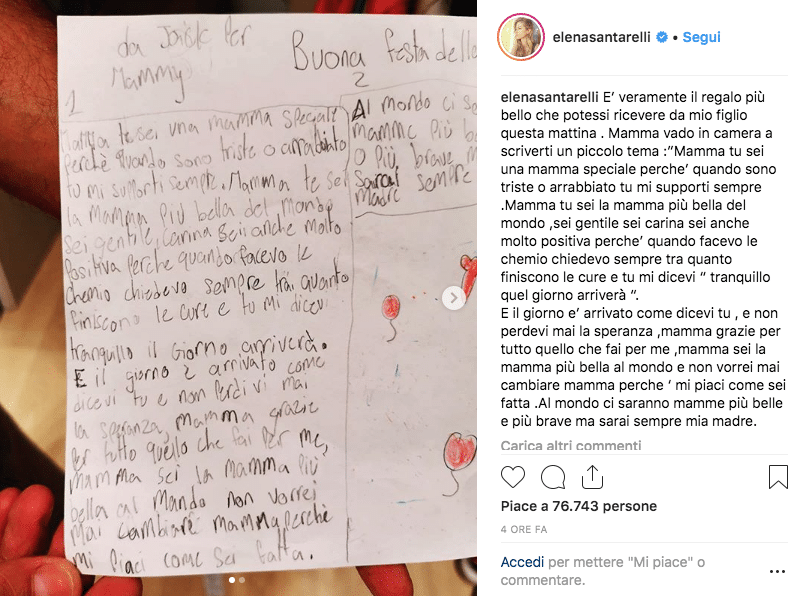 da Jack Per
Mammy
Buona festa delle
1
Mamma te sei una mamma speciale
Perchè quando sono triste o arrabbiato
tu mi supporti sempre. Mamma te sei
la mamma più bella del mondo
sei gentile, carina sei anche molto
Positiva Perche quando facevo le
chemio chiedevo sempre trai quanto
finiscono le cure e tu mi dicevi
tranquillo il giorno arriverà.
E il giorno è arrivato come
dicevi tu e non Perdivi mai
la speranza, mamma grazie
Per tutto quello che fai Per me,
mamma sei la mamma Più
bella al Mondo non vorrei
mai cambiare mamma perchè
mi Piaci come sei fatta.
2
Al mondo ci sa
mamme Più be
o Più brave m
sarai sempre
madre
elenasantarelli • Segui
elenasantarelli E' veramente il regalo più
bello che potessi ricevere da mio figlio
questa mattina . Mamma vado in camera a
scriverti un piccolo tema :"Mamma tu sei
una mamma speciale perche' quando sono
triste o arrabbiato tu mi supporti sempre
.Mamma tu sei la mamma più bella del
mondo ,sei gentile sei carina sei anche
molto positiva perche' quando facevo le
chemio chiedevo sempre tra quanto
finiscono le cure e tu mi dicevi " tranquillo
quel giorno arriverà ".
E il giorno e' arrivato come dicevi tu , e non
perdevi mai la speranza ,mamma grazie per
tutto quello che fai per me ,mamma sei la
mamma più bella al mondo e non vorrei mai
cambiare mamma perche ' mi piaci come sei
fatta .Al mondo ci saranno mamme più belle
e più brave ma sarai sempre mia madre.
Carica altri commenti
Piace a 76.743 persone
4 ORE FA
Accedi per mettere "Mi piace" o
commentare.